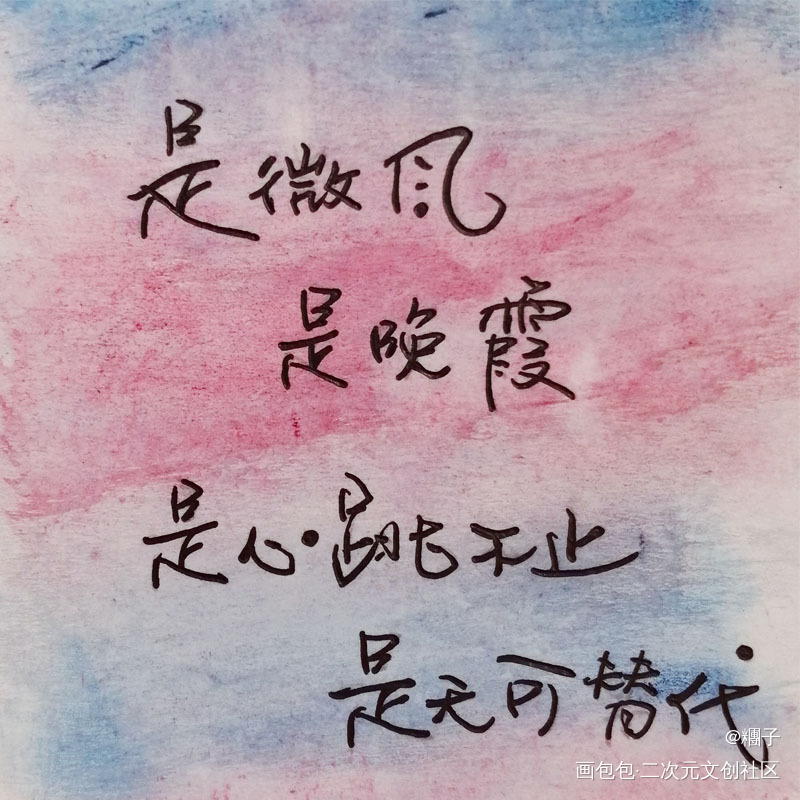 是微风
是晚霞
是心跳不止
是无可替代
@糰子
画包包·二次元文创社区